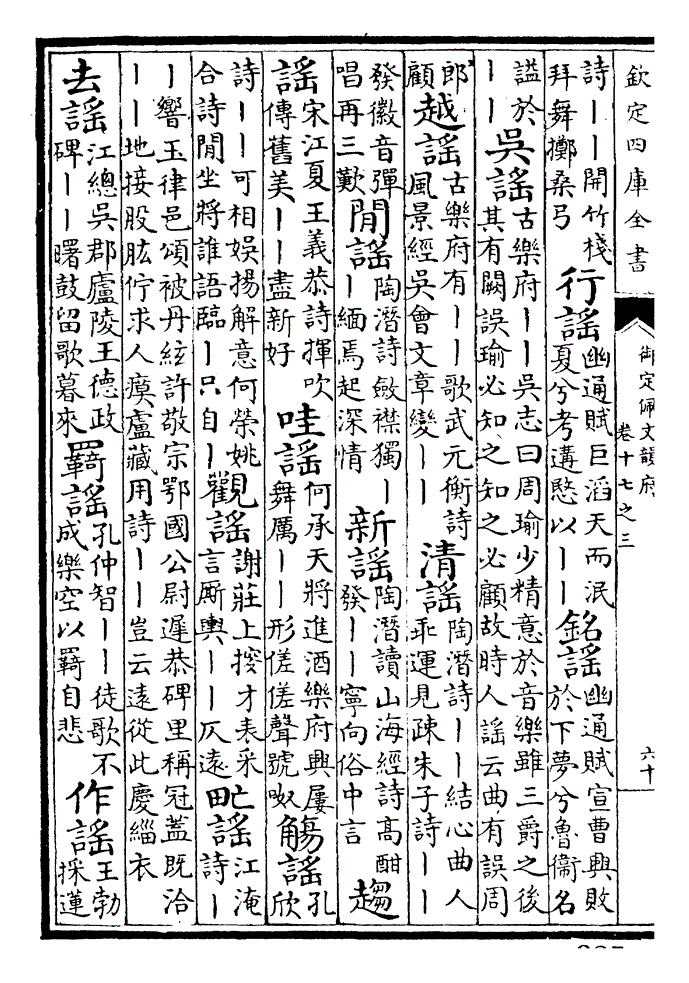 欽定四庫全書
御定佩文韻府
卷十七之三
六十
詩丨丨開竹棧
拜舞擲桑弓
行謠
幽通賦巨滔天而泯
夏兮考遘愍以丨丨
銘謠
幽通賦宣曹興敗
於下夢兮魯衞名
謚於
丨丨
吳謠
古樂府丨丨吳志曰周瑜少精意於音樂雖三爵之後
其有闕誤瑜必知之知之必顧故時人謠云曲有誤周
郎
顧
越謠
古樂府有丨丨歌武元衡詩
風景經吳會文章變丨丨
清謠
陶潛詩丨丨結心曲人
乖運見疎朱子詩丨丨
發徽音彈
唱再三歎
閒謠
陶潛詩斂襟獨丨
丨緬焉起深情
新謠
陶潛讀山海經詩高酣
發丨丨寧向俗中言
趨
謠
宋江夏王義恭詩揮吹
傳舊美丨丨盡新好
哇謠
何承天將進酒樂府興屢
舞厲丨丨形傞傞聲號呶
觴謠
孔
欣
詩丨丨可相娛揚解意何榮姚
合詩閒坐將誰語臨丨只自丨
觀謠
謝莊上搜才表采
言厮輿丨丨仄遠
甿謠
江淹
詩丨
丨響玉律邑頌被丹絃許敬宗鄂國公尉遲恭碑里稱冠蓋既洽
丨丨地接股肱佇求人瘼盧藏用詩丨丨豈云遠從此慶緇衣
去謠
江總吳郡廬陵王德政
碑丨丨曙鼓留歌暮來
羇謠
孔仲智丨丨徒歌不
成樂空以羇自悲
作謠
王勃
採蓮